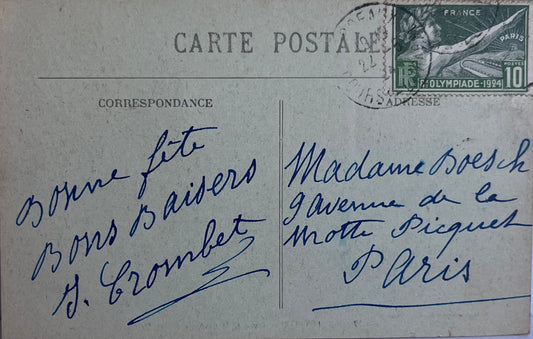 CARTE POSTALE
FRANCE
PARIS
RF
POSTES
10
8E OLYMPIADE-1924
22
CORRESPONDANCE
ADRESSE
Bonne fête
Bons Baisers
J. Crombet
Madame Boesch
9 avenue de la
Motte Picquet
Paris